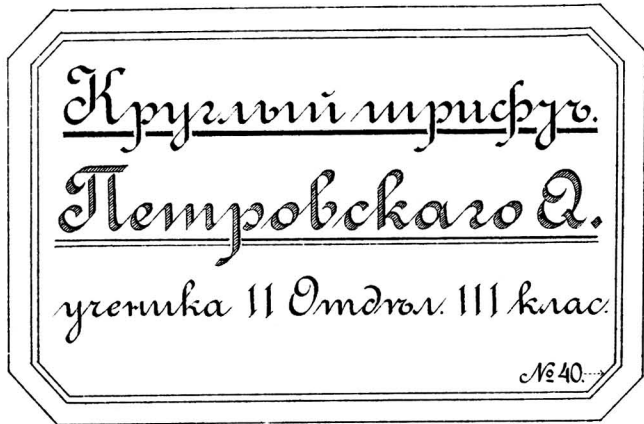 Круглый шрифтъ.
Петровскаго А.
ученика II Отдѣл. III клас.
№ 40.